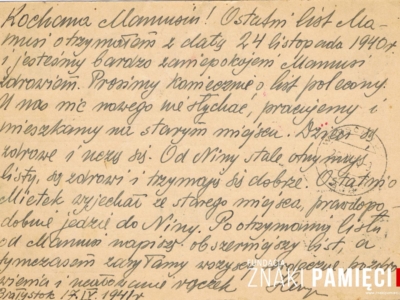 Kochana Mamusiu! Ostatni list Ma-
musi otrzymałem z datą 24 listopada 1940 r.
i jesteśmy bardzo zaniepokojeni Mamusi
zdrowiem. Prosimy koniecznie o list polecony.
U nas nic nowego nie słychać, pracujemy i
mieszkamy na starym miejscu. Dzieci są
zdrowe i uczą się. Od Niny stale otrzymuję
listy, są zdrowi i trzymają się dobrze. Ostatnio
Mietek wyjechał ze starego miejsca, prawdopo-
dobnie jedzie do Niny. Po otrzymaniu listu
od Mamusi napiszę obszerniejszy list, a
tymczasem zasyłamy wszyscy serdeczne pozdro-
wienia i ucałowanie rączek
Białystok 17.IV.1941 r.
FUNDACJA
ZNAKI PAMIĘCI